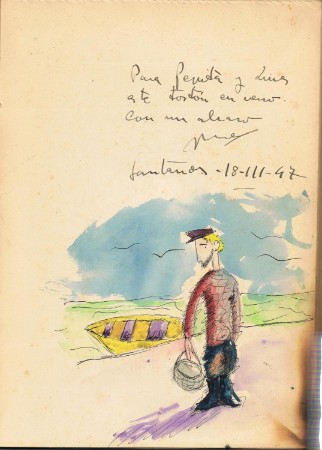 Para Pepita y Luis
este tostón en verso.
con un abrazo
Santander - 18-III-47